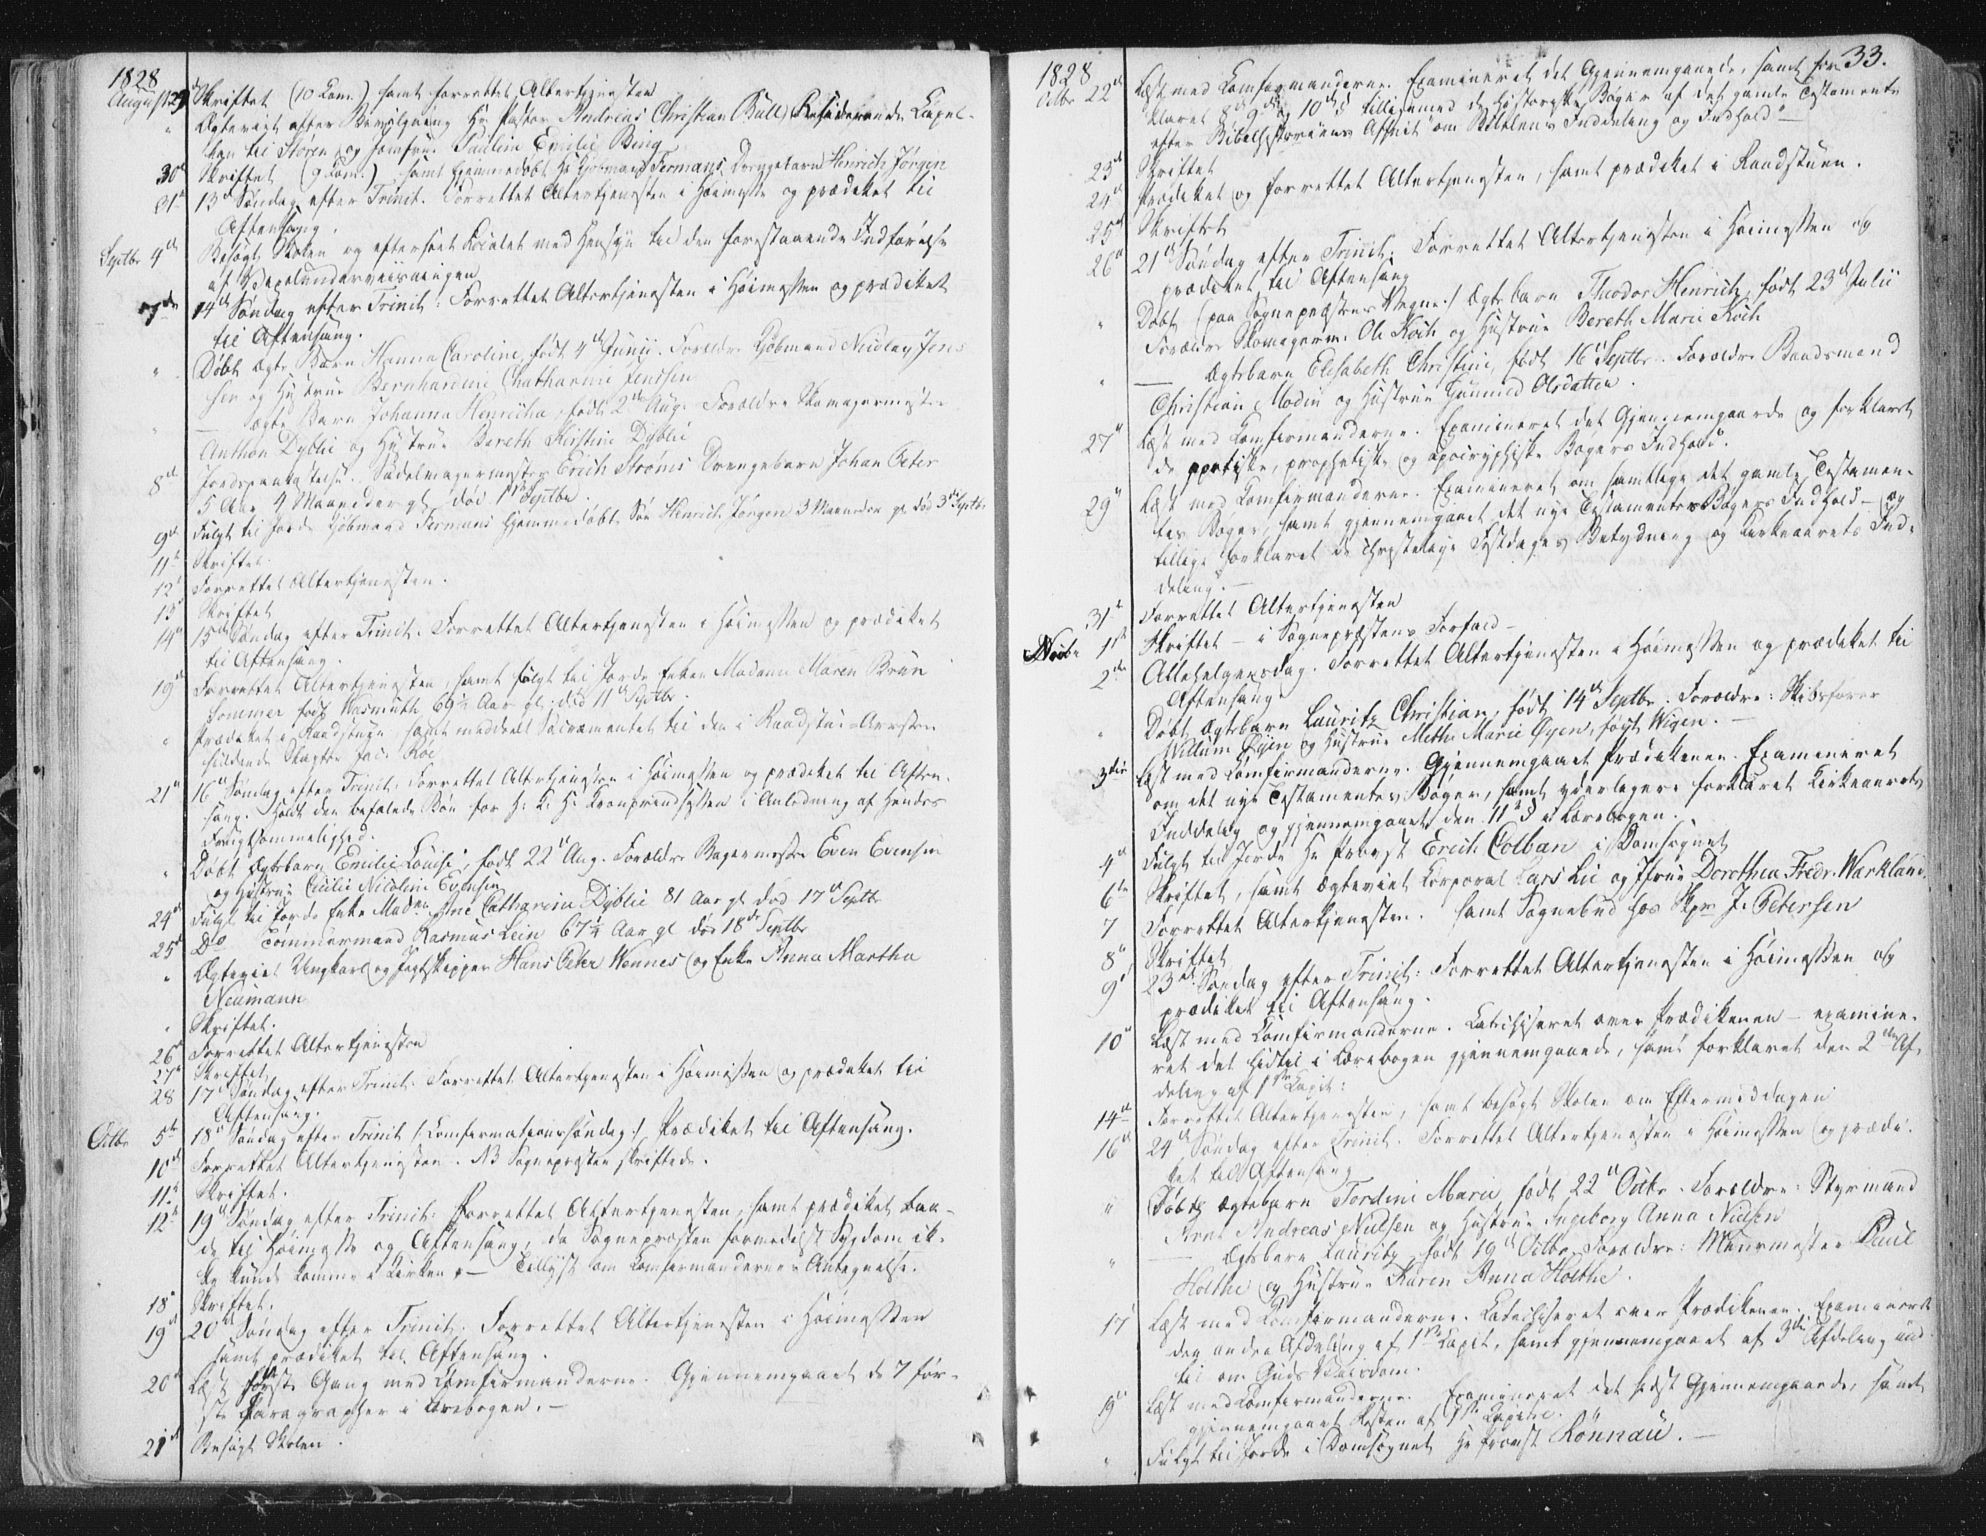 1828
August 29 Skriftet (10 Com.) samt forrettet Altertjenesten
" Ægteviet efter Bevilgning Hr Pastor Andreas Christian Bull, Residerende Capel-
lan til Støren og Jomfrue Pauline Emilie Bing
30d Skriftet (9 Com.) samt hjemmedøbt Hr Kjøbmand Fermans Drengebarn Henrich Jørgen
31t 13d Søndag efter Trinit. Forrettet Altertjenesten i Høimesse og prædiket til
Aftensang.
Septbr 4de Besøgt Skolen og efterseet Localet med Hensyn til den forestaaende Indførelse
af Vexelunderviisningen
7de 14d Søndag efter Trinit: Forrettet Altertjenesten i Høimessen og prædiket
til Aftensang.
" Døbt ægte Barn Hanna Caroline, født 4d Junii. Forældre Kjøbmand Nicolay Jens
sen og Hustrue Bernhardine Chatharine Jenssen
" — ægte Barn Johanna Henricha, født 2d Aug. Forældre Skomagermester
Anthon Dyblie og Hustrue Bereth Kirstine Dyblie
8d Jordspaakastelse. Sadelmagermester Erich Strøms Drengebarn Johan Peter
5 Aar 4 Maaneder gl død 1ste Septbr.
9d Fulgt til Jorde Kjøbmand Fermans hjemmedøbte Søn Henrich Jørgen 3 Maaneder gl død 3d Septbr
11t Skriftet.
12t Forrettet Altertjenesten.
13d Skriftet
14d 15de Søndag efter Trinit. Forrettet Altertjenesten i Høimessen og prædiket
til Aftensang.
19d Forrettet Altertjenesten, samt fulgt til Jorde Enken Madame Maren Brun
Sommer født Wasmuth 69½ Aar gl. død 11d Septbr.
" Prædiket i Raadstuen, samt meddeelt Sacramentet til den i Raadstue-Arresten
siddende Slagter Jac. Roe
21d 16d Søndag efter Trinit. Forrettet Altertjenesten i Høimessen og prædiket til Aften-
sang. Holdt den befalede Bøn for H: K: H: Kronprindsessen i Anledning af Hendes
Frugtsommelighed.
" Døbt Ægtebarn Emilie Louise, født 22d Aug. Forældre Bagermester Even Evensen
og Hustrue Cecilie Nicoline Evensen
24d Fulgt til Jorde Enke Madme Ane Catharine Dyblie 81 Aar gl død 17d Septbr
25d Do Tømmermand Rasmus Lein 67¼ Aar gl død 18de Septbr
" Ægteviet Ungkarl og Jagtskipper Hans Peter Wennes og Enke Anna Martha
Neumann
" Skriftet.
26d Forrettet Altertjenesten
27d Skriftet
28 17d Søndag efter Trinit: Forrettet Altertjenesten i Høimessen og prædiket til
Aftensang.
Octbr 5te 18d Søndag efter Trinit /: Confirmationssøndag :/ Prædiket til Aftensang.
10d Forrettet Altertjenesten. NB Sognepræsten skriftede.
11t Skriftet.
12t 19d Søndag efter Trinit: Forrettet Altertjenesten, samt prædiket baa-
de til Høimesse og Aftensang, da Sognepræsten formedelst Sygdom ik-
ke kunde komme i Kirken — Tillyst om Confirmandernes Antegnelse.
18d Skriftet.
19d 20de Søndag efter Trinit: Forrettet Altertjenesten i Høimessen
samt prædiket til Aftensang.
20d Læst første Gang med Confirmanderne. Gjennemgaaet de 7 før-
ste Paragrapher i Lærebogen. —
21d Besøgt Skolen.
33.
1828
Octbr 22de Læst med Confirmanderne. Examineret det Gjennemgaaede, samt for-
klaret 8de 9de og 10de § tilligemed de historiske Bøger af det gamle Testamente
efter Bibelhistoriens Afsnit "om Bibelens Inddeling og Indhold" —
23d Skriftet
24d Prædiket og forrettet Altertjenesten, samt prædiket i Raadstuen.
25d Skriftet
26d 21d Søndag efter Trinit. Forrettet Altertjenesten i Høimessen og
prædiket til Aftensang
" Døbt (paa Sognepræstens Vegne:/ Ægtebarn Theodor Henrich, født 23d Julii
Forældre Skomagerm. Ole Koch og Hustrue Bereth Marie Koch
" — Ægtebarn Elisabeth Christine, født 16d Septbr. Forældre Baadsmand
Christian Modin og Hustrue Gunnild Olsdatter.
27d Læst med Confirmanderne. Examineret det Gjennemgaaede og forklaret
de poetiske, prophetiske og apocryphiske Bøgers Indhold.
29d Læst med Confirmanderne. Examineret om samtlige det gamle Testamen-
tes Bøger, samt gjennemgaaet det nye Testamentes Bøgers Indhold — og
tillige forklaret de christelige Festdages Betydning og Kirkeaarets Ind-
deling. —
31t Forrettet Altertjenesten
Novbr 1st Skriftet — i Sognepræstens Forfald —
2de Allehelgensdag. Forrettet Altertjenesten i Høimessen og prædiket til
Aftensang
" Døbt Ægtebarn Lauritz Christian, født 14d Septbr. Forældre: Skibsfører
Willum Øyen og Hustrue Mette Marie Øyen, født Wigen. —
3die Læst med Confirmanderne. Gjennemgaaet Prædikenen. Examineret
om det nye Testamentes Bøger, samt yderligere forklaret Kirkeaarets
Inddeling og gjennemgaaet den 11t § i Lærebogen.
4d Fulgt til Jorde Hr Provst Erich Colban i Domsognet
6te Skriftet, samt Ægteviet Corporal Lars Lie og Jfrue Dorothea Fredr. Warkland.
7 Forrettet Altertjenesten. samt Sognebud hos Skpr J. Petersen
8d Skriftet
9d 23d Søndag efter Trinit: Forrettet Altertjenesten i Høimessen og
prædiket til Aftensang.
10d Læst med Confirmanderne. Catechiseret over Prædikenen — examine-
ret det hidtil i Lærebogen gjennemgaaede, samt forklaret den 2den Af-
deling af 1ste Capit:
14d Forrettet Altertjenesten, samt besøgt Skolen om Eftermiddagen
16d 24d Søndag efter Trinit. Forrettet Altertjenesten i Høimessen og prædi-
ket til Aftensang
" Døbt Ægtebarn Jordine Marie, født 22d Octbr. Forældre: Styrmand
Arnt Andreas Nielsen og Hustrue Ingeborg Anna Nielsen
" — Ægtebarn Lauritz født 19d Octbr. Forældre: Muurmester Paul
Holthe og Hustrue Karen Anna Holthe.
17d Læst med Confirmanderne. Catechiseret over Prædikenen. Examineret
den anden Afdeling af 1ste Capit, samt gjennemgaaet af 3die Afdeling ind-
til om Guds Viisdom.
19d Læst med Confirmanderne. Examineret det sidst Gjennemgaaede, samt
gjennemgaaet Resten af 1ste Capitel.
" Fulgt til Jorde i Domsognet Hr Provst Rönnau. —